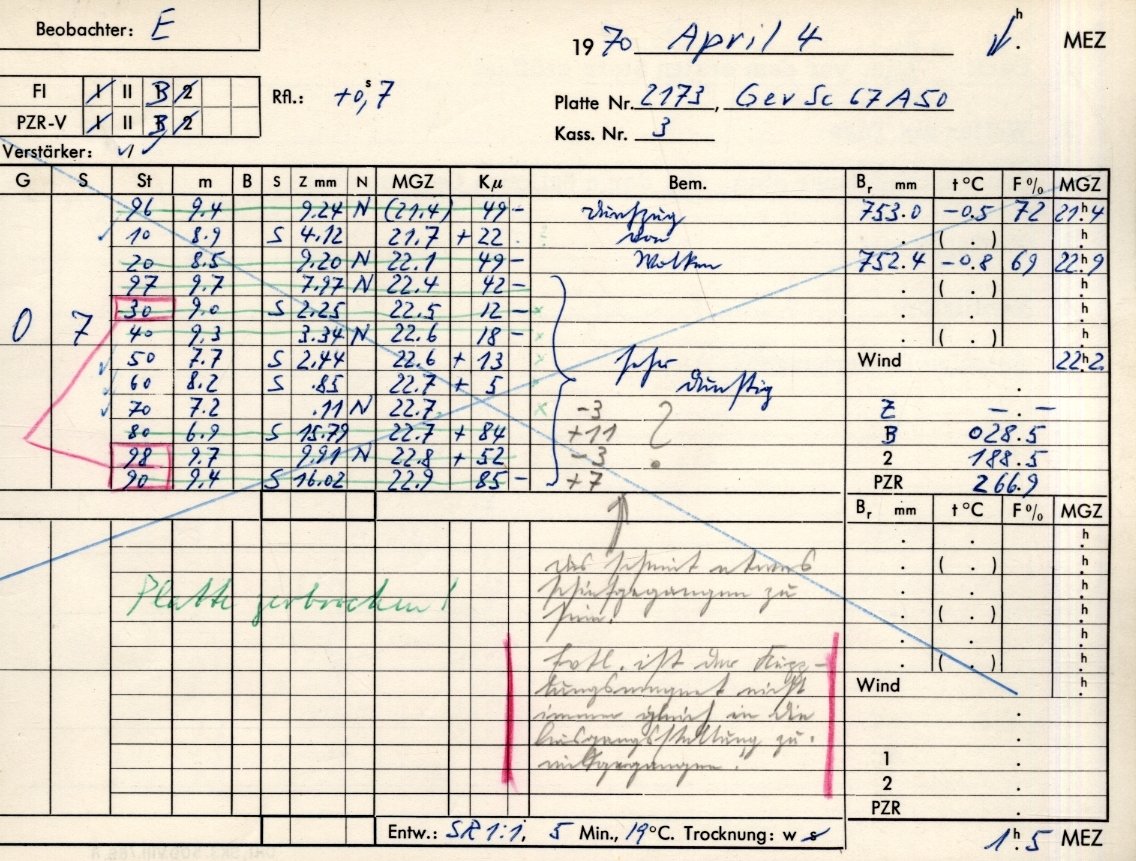 Beobachter: E
1970 April 4 h. MEZ
FI I II B 2
PZR-V I II B 2
Verstärker:
Rfl.: +0,s7
Platte Nr. 2173, Gev Sc 67 A 50
Kass. Nr. 3
G S St m B S Z mm N MGZ Kμ Bem. Br mm t °C F % MGZ
96 9.4 9.24 N (21.4) 49 - Dunstzug 753.0 -0.5 72 21h.4
10 8.9 S 4.12 21.7 + 22 von . ( . ) h.
20 8.5 9.20 N 22.1 49 - Wolken 752.4 -0.8 69 22h.9
97 9.7 7.97 N 22.4 42 - . ( . ) h.
0 7 30 9.0 S 2.25 22.5 12 - . . h.
40 9.3 3.34 N 22.6 18 - . ( . ) h.
50 7.7 S 2.44 22.6 + 13 sehr Wind 22h.2
60 8.2 S .85 22.7 + 5 dunstig .
70 7.2 .11 N 22.7 -3 ? Z -.-
80 6.9 S 15.79 22.7 + 84 +11 B 028.5
98 9.7 9.91 N 22.8 + 52 -3 2 188.5
90 9.4 S 16.02 22.9 85 - +7 PZR 266.9
Br mm t °C F % MGZ
Platte zerbrochen!
das scheint etwas
schiefgegangen zu
sein.
Evtl. ist der Kupp-
lungsmagnet nicht
immer gleich in die
Ausgangsstellung zu-
Wind h.
1 .
2 .
PZR .
Entw.: SR 1:1, 5 Min., 19°C. Trocknung: w s
1h.5 MEZ